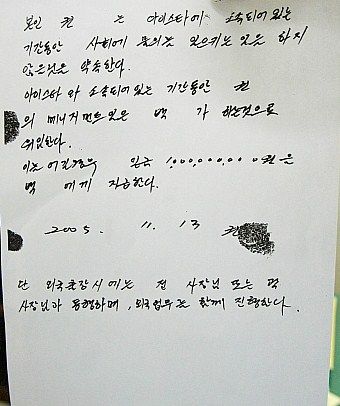 본인 권 는 아이스타에 소속되어 있는
기간동안 사회에 물의를 일으키는 일은 하지
않을것을 약속한다.
아이스타와 소속되어있는 기간동안 권
의 매니저먼트일은 백 가 하는것으로
위임한다.
이를 어길경우 일금 1,000,000,000원을
백 에게 지급한다.
2005. 11. 13 권
단 외국출장시에는 전 사장님 또는 백
사장님과 동행하며, 외국업무는 함께 진행한다.